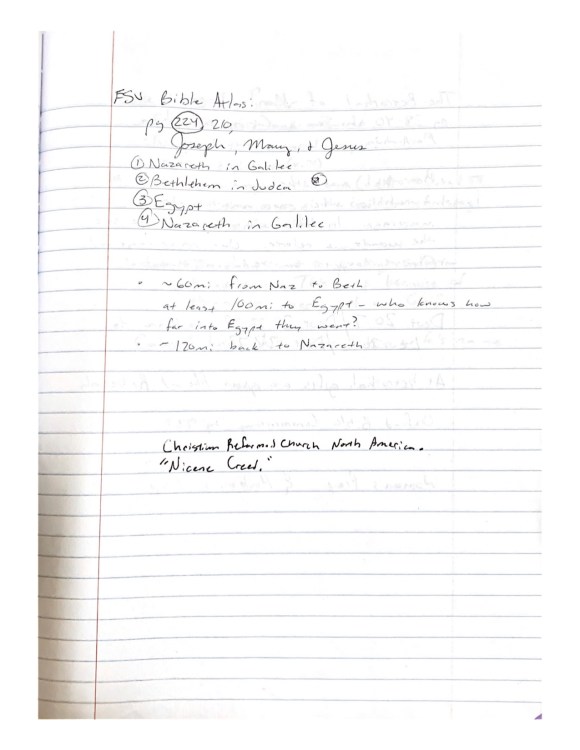 ESV Bible Atlas:
pg 224, 210,
Joseph, Mary, & Jesus
① Nazareth in Galilee
② Bethlehem in Judea ②
③ Egypt
④ Nazareth in Galilee
• ~60mi from Naz to Beth
at least 100mi to Egypt - who knows how
far into Egypt they went?
• ~120mi back to Nazareth
Christian Reformed Church North America.
"Nicene Creed."